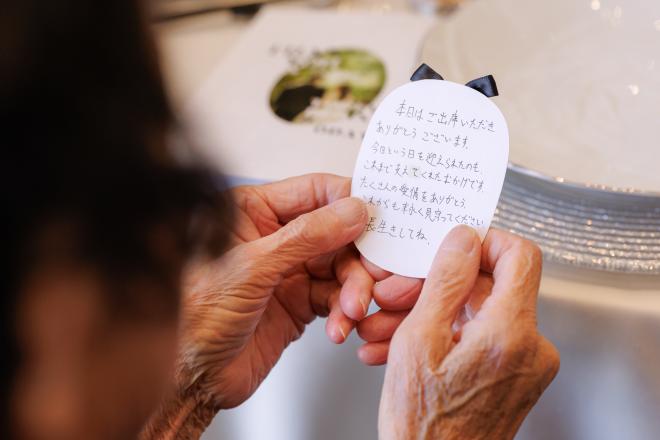 本日はご出席いただき
ありがとうございます。
今日という日を迎えられたのも、
これまで支えてくれたおかげです。
たくさんの愛情をありがとう。
これからも末永く見守ってください
長生きしてね。